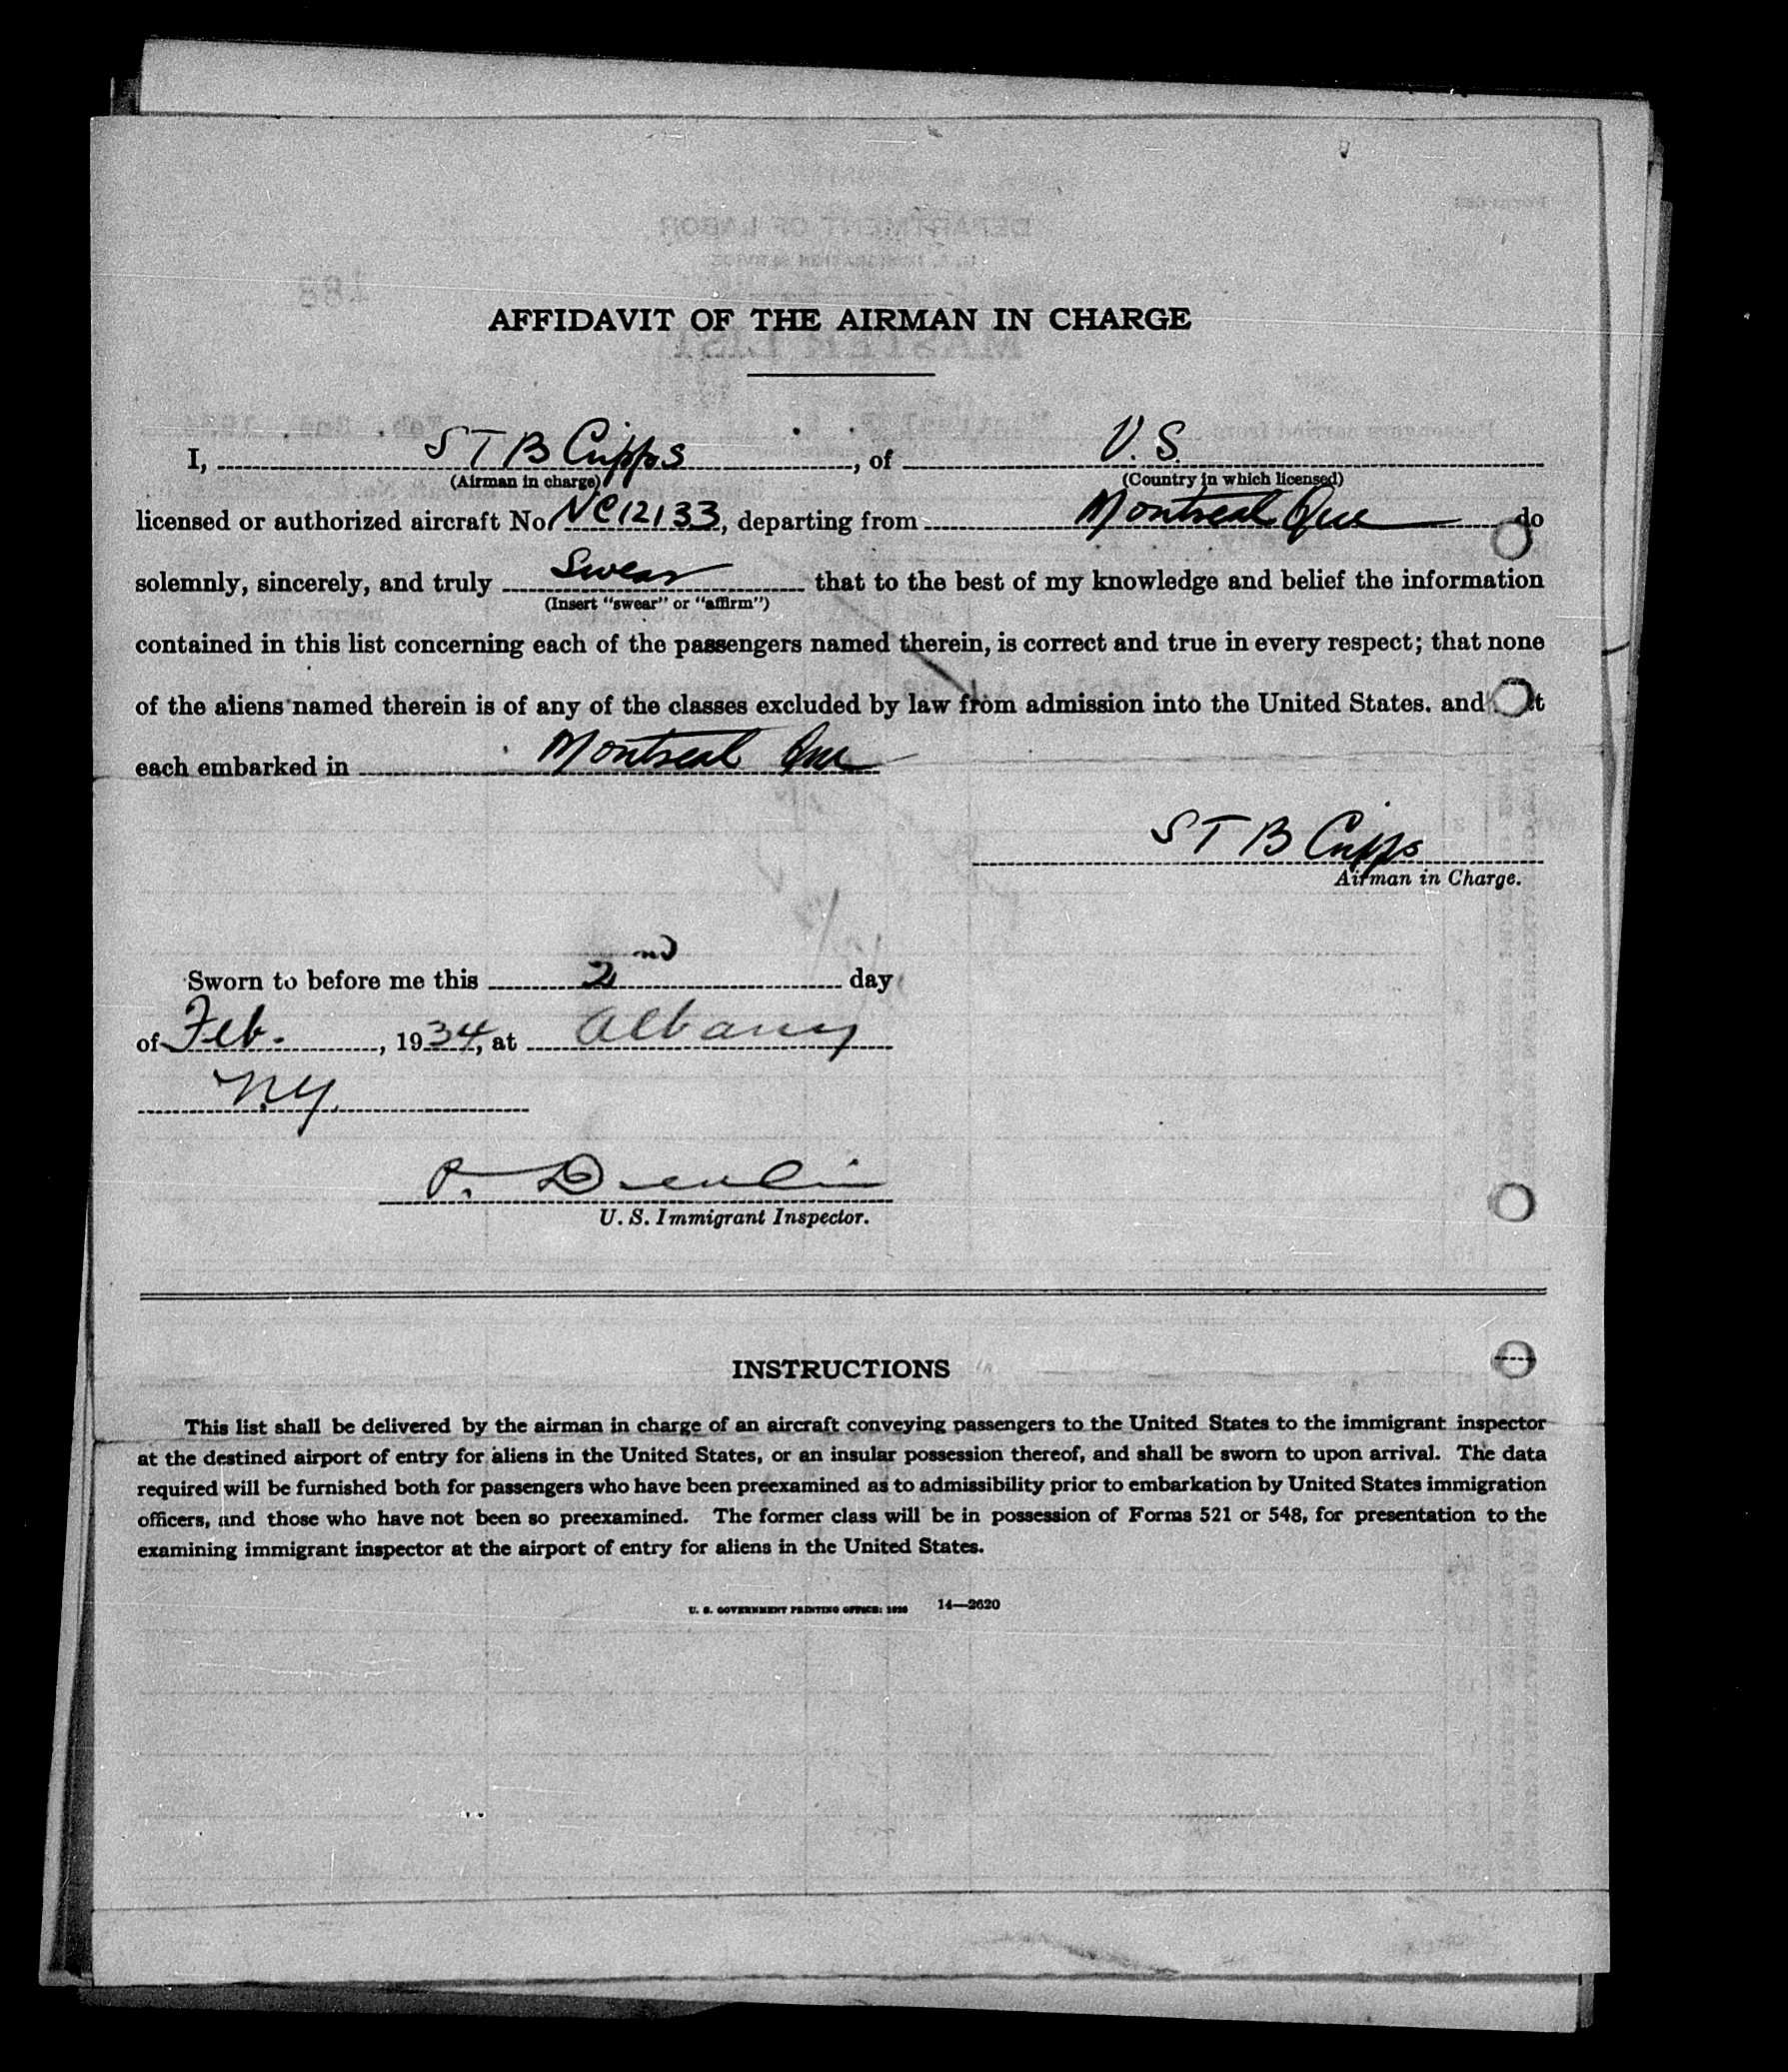 AFFIDAVIT OF THE AIRMAN IN CHARGE
I, S T B Cripps, of U.S.
(Airman in charge) (Country in which licensed)
licensed or authorized aircraft No. NC12133, departing from Montreal Que do
solemnly, sincerely, and truly Swear that to the best of my knowledge and belief the information
(Insert "swear" or "affirm")
contained in this list concerning each of the passengers named therein, is correct and true in every respect; that none
of the aliens named therein is of any of the classes excluded by law from admission into the United States. and t
each embarked in Montreal Que
S T B Cripps
Airman in Charge.
Sworn to before me this 2nd day
of Feb., 1934, at Albany
N.Y.
P. Devlin
U. S. Immigrant Inspector.
INSTRUCTIONS
This list shall be delivered by the airman in charge of an aircraft conveying passengers to the United States to the immigrant inspector
at the destined airport of entry for aliens in the United States, or an insular possession thereof, and shall be sworn to upon arrival. The data
required will be furnished both for passengers who have been preexamined as to admissibility prior to embarkation by United States immigration
officers, and those who have not been so preexamined. The former class will be in possession of Forms 521 or 548, for presentation to the
examining immigrant inspector at the airport of entry for aliens in the United States.
U. S. GOVERNMENT PRINTING OFFICE: 14—2620